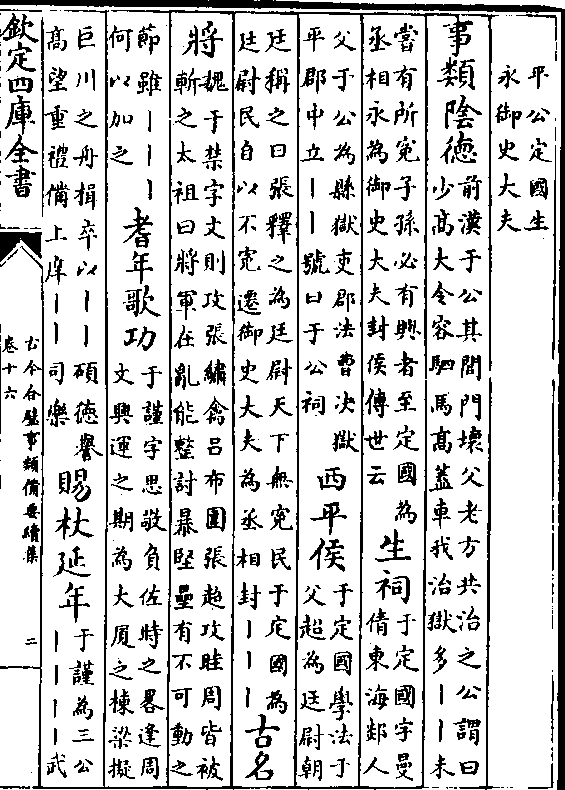 平公定國生
永御史大夫
事類 陰德 前漢于公其閭門壞父老方共治之公謂曰
少高大令容駟馬高蓋車我治獄多丨丨未
嘗有所寃子孫必有興者至定國為
丞相永為御史大夫封侯傳世云
生祠 于定國字曼
倩東海郯人
父于公為縣獄吏郡法曹决獄
平郡中立丨丨號曰于公祠
西平侯 于定國學法于
父超為廷尉朝
廷稱之曰張釋之為廷尉天下無寃民于定國為
廷尉民自以不寃遷御史大夫為丞相封丨丨丨
古名
將 魏于禁字文則攻張繡禽呂布圍張超攻眭周皆被
斬之太祖曰將軍在亂能整討暴堅壘有不可動之
節雖丨丨丨
何以加之
耆年歌功 于謹字思敬負佐時之畧逢周
文興運之期為大厦之棟梁擬
巨川之舟楫卒以丨丨碩德譽
高望重被備上庠丨丨司樂
賜杖延年 于謹為三公
丨丨丨丨武
欽定四庫全書
古今合璧事類備要續集
卷十六
二